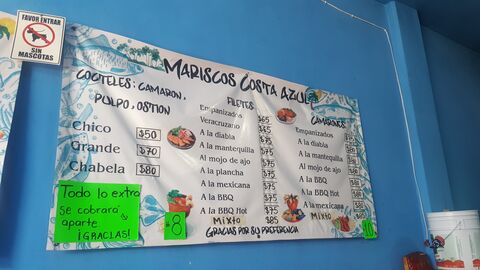 FAVOR ENTRAR
SIN
MASCOTAS
MARISCOS COSTA AZUL
COCTELES: CAMARON,
PULPO, OSTION
Chico $50
Grande $70
Chabela $80
Todo lo extra
se cobrará
aparte
¡GRACIAS!
FILETES
Empanizados
Veracruzano $65
A la diabla $75
A la mantequilla $75
Al mojo de ajo $75
A la plancha $75
A la mexicana $75
A la BBQ $75
A la BBQ Hot $75
MIXTO $85
8
CAMARONES
Empanizados
A la diabla $75
A la mantequilla $75
Al mojo de ajo $75
A la mexicana $75
A la BBQ $75
A la BBQ Hot $75
MIXTO $85
GRACIAS POR SU PREFERENCIA